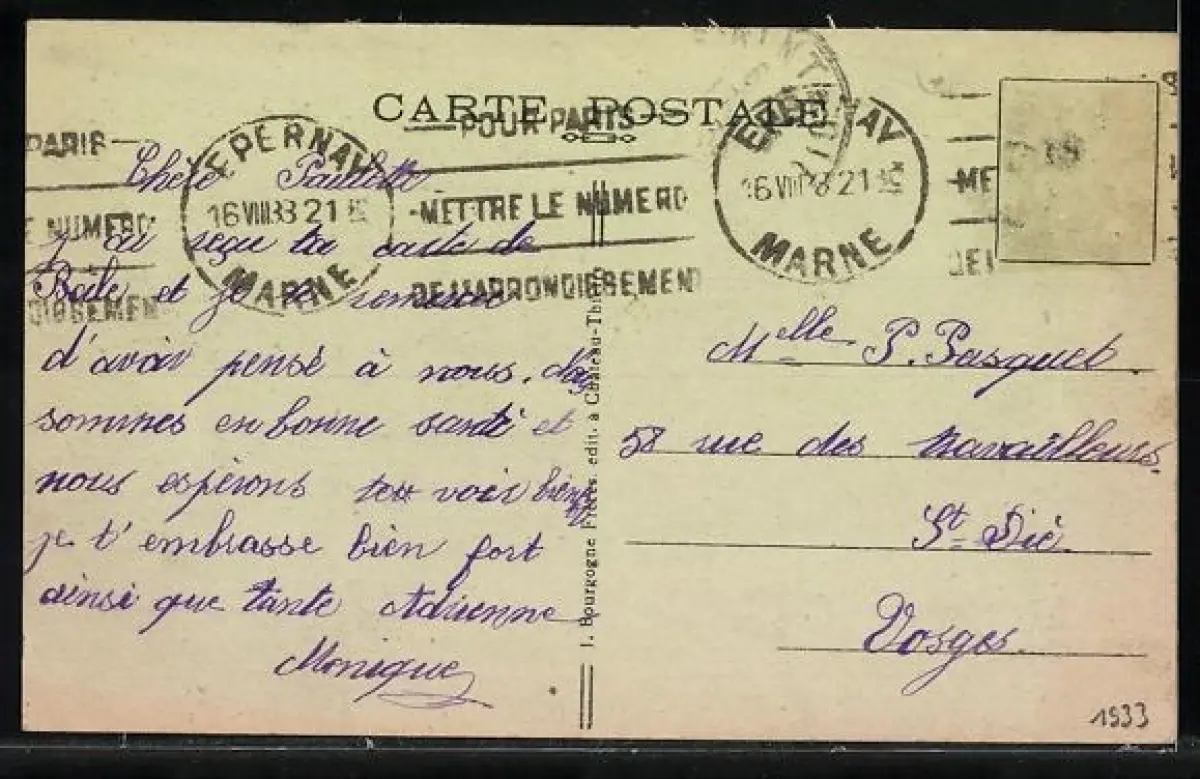 CARTE POSTALE
PARIS — — POUR PARIS —
E NUMERO - METTRE LE NUMERO - ME
DISSEMEN DE L'ARRONDISSEMENT DE L'
EPERNAY
16 VIII 33 21
MARNE
EPERNAY
16 VIII 33 21
MARNE
Chère Paulette
J'ai reçu ta carte de
et je te remercie
d'avoir pensé à nous. Nous
sommes en bonne santé et
nous espérons te voir bientôt
je t'embrasse bien fort
ainsi que tante Adrienne
Monique
J. Bourgogne Frères, edit. à Château-Thierry
Melle P. Pasquet
58 rue des travailleurs.
St Dié.
Vosges.
1933